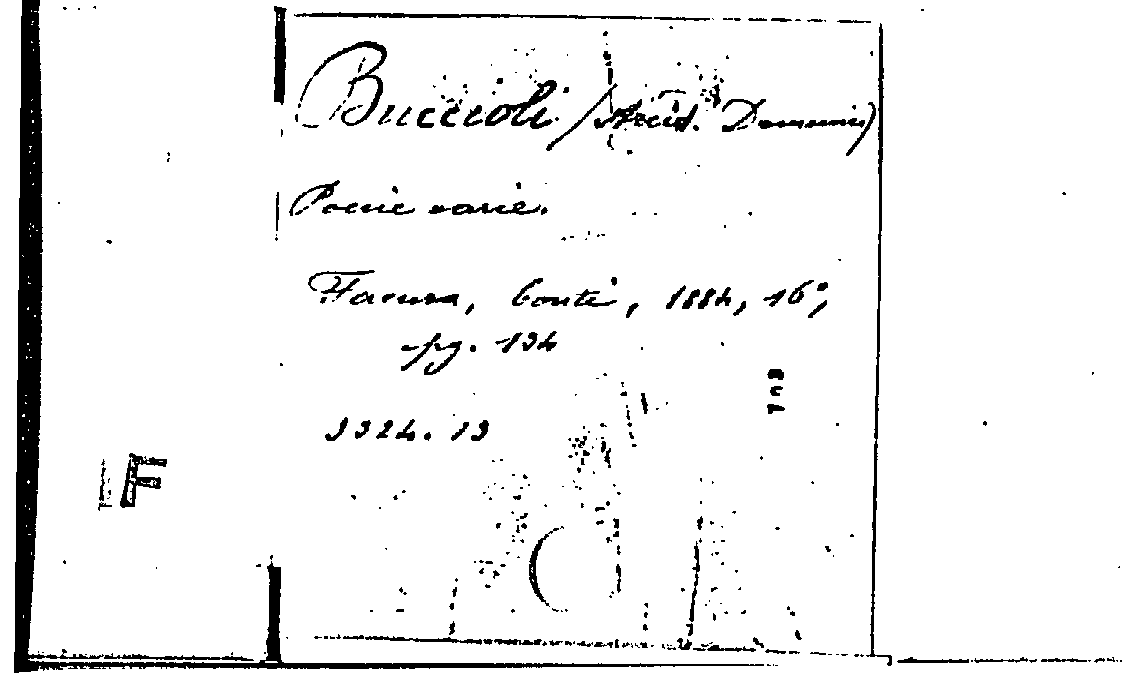 Buccioli (Arcid. Domenico)
Poesie varie.
Faenza, Conti, 1884, 16°,
pg. 134
3324. 13
IF